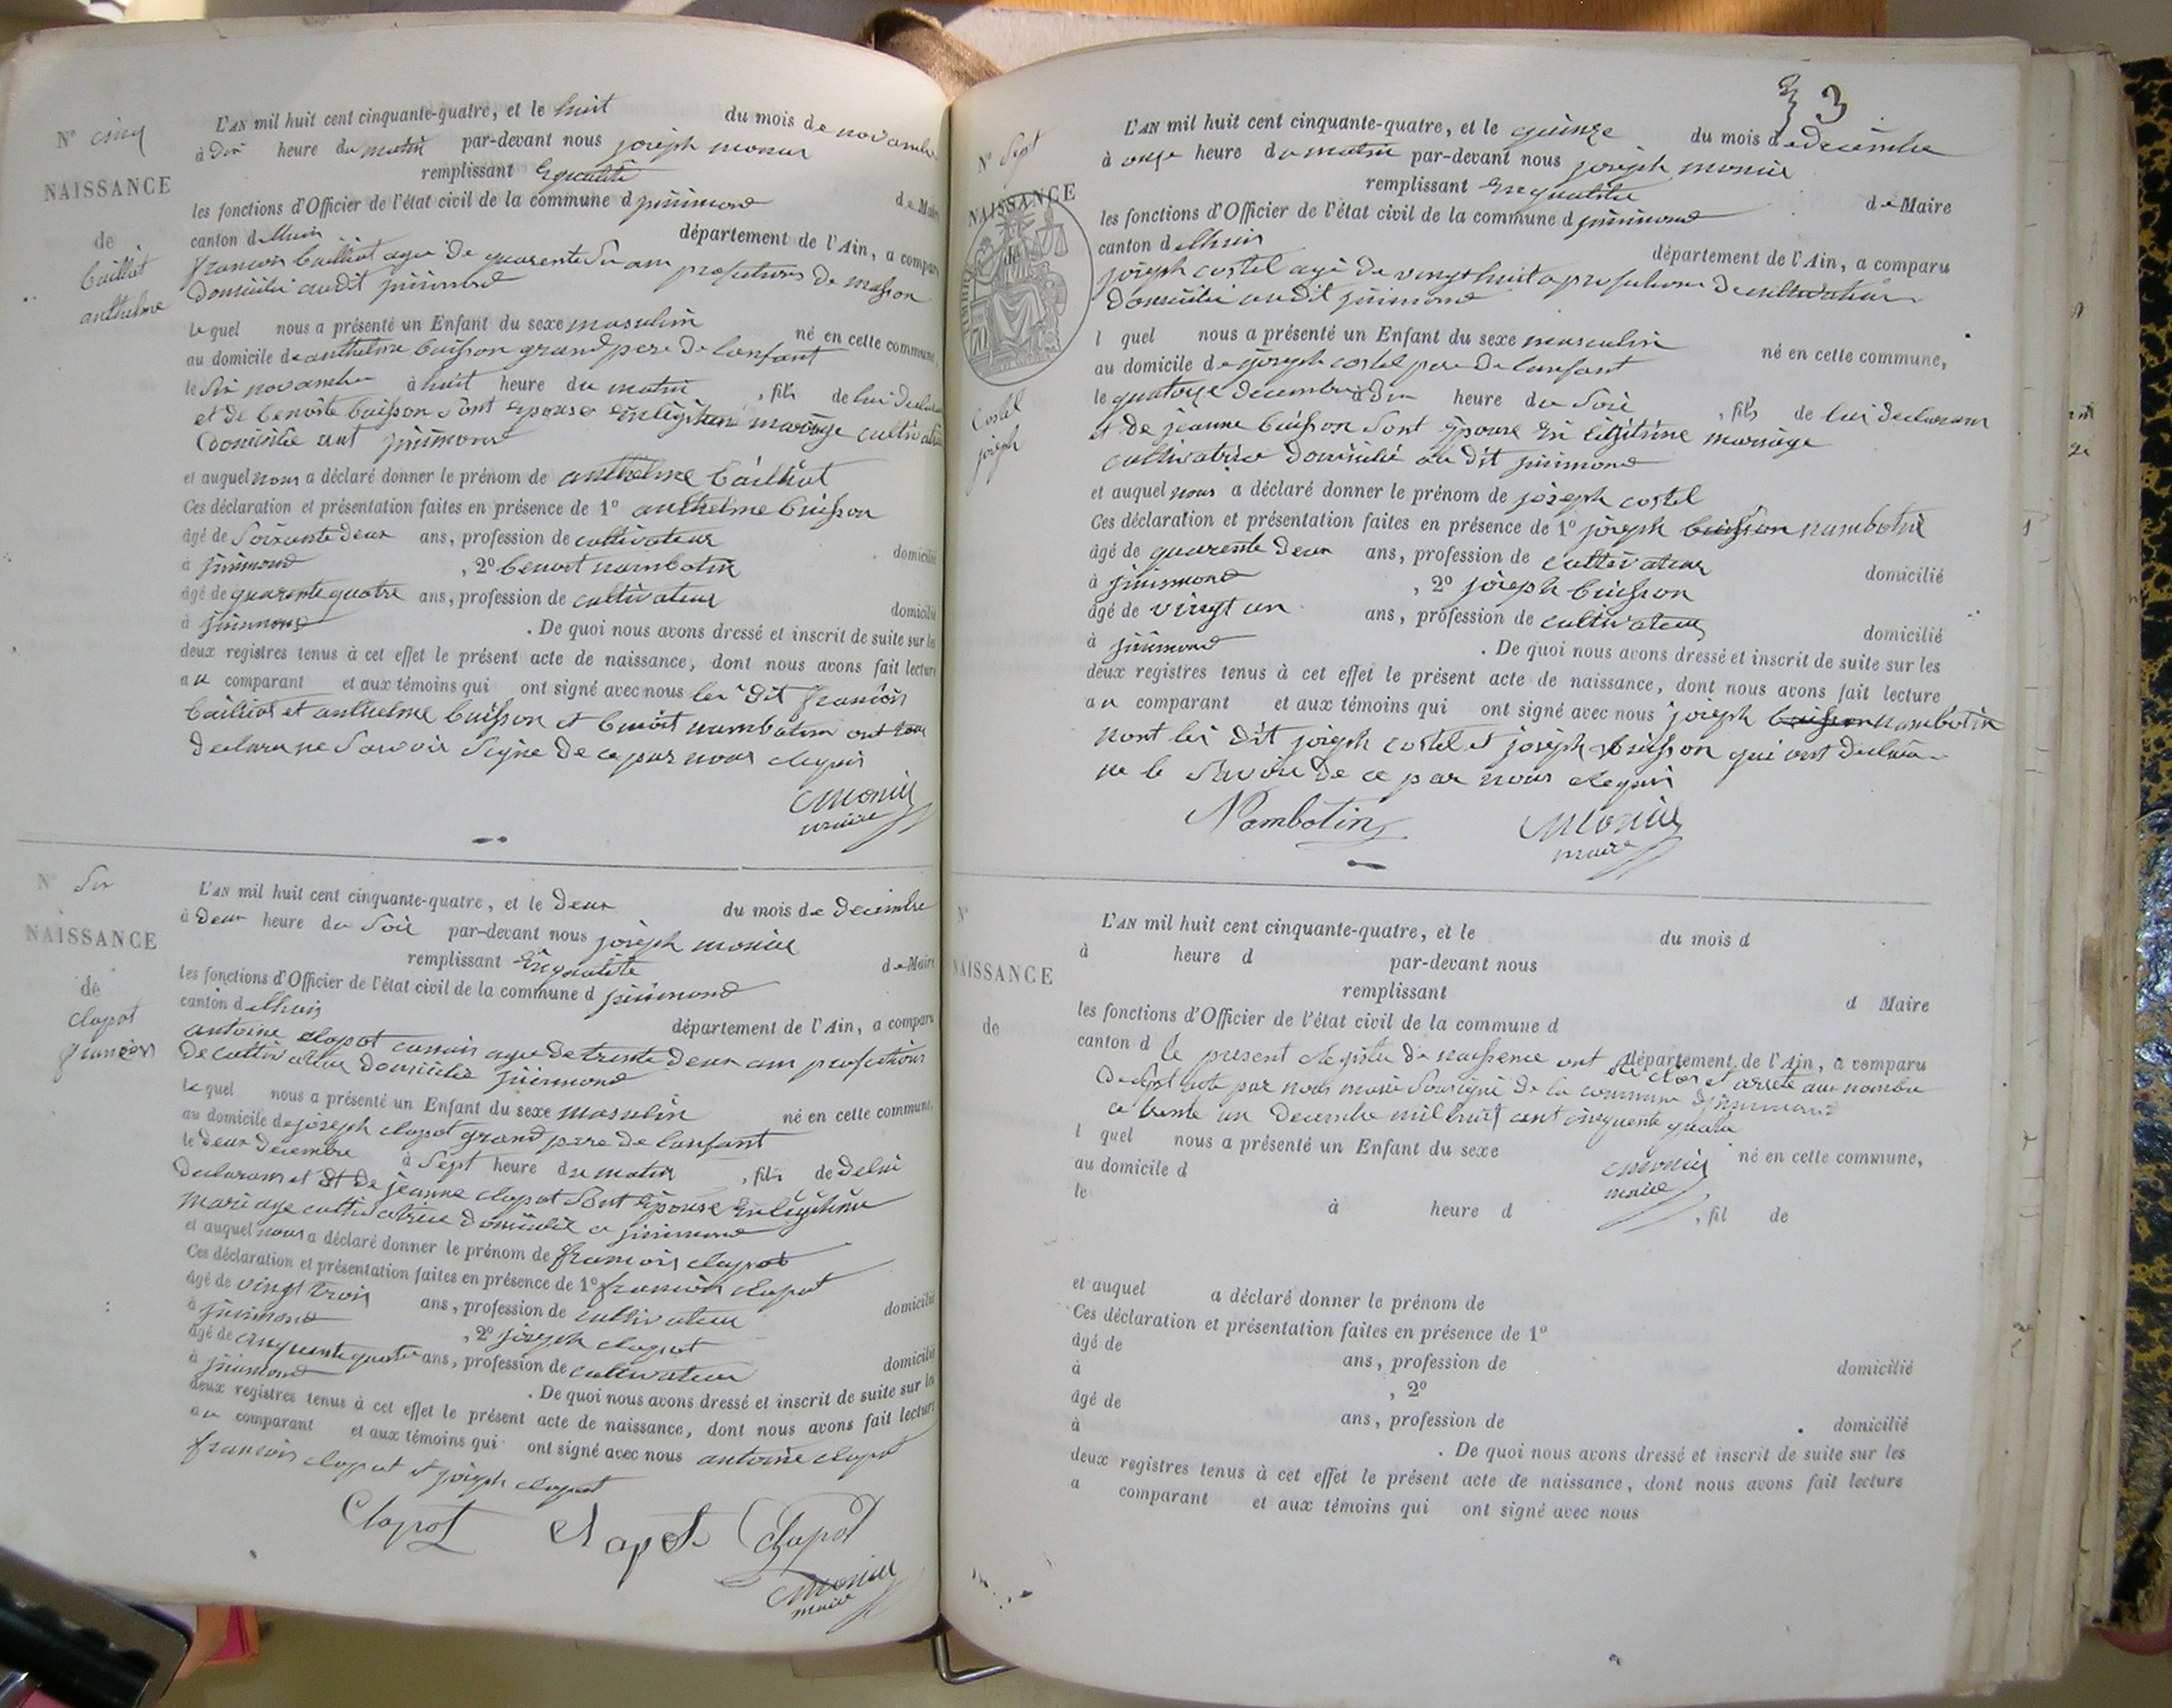 N° cinq
NAISSANCE
de
bailliot
anthelme
L'AN mil huit cent cinquante-quatre, et le huit du mois de novambre
à dix heure du matin par-devant nous joseph monier
remplissant En qualité de Maire
les fonctions d'Officier de l'état civil de la commune d prémond
canton d lhuis département de l'Ain, a comparu
francois bailliot agé de quarente six ans profetions de masson
domicilié audit
le quel nous a présenté un Enfant du sexe masculin né en cette commune,
au domicile de anthelme buisson grand pere de lanfant
le six novambre à huit heure du matin , fils de lui declarant
et de benoite buisson sont epouse En legitime mariage cultivatrice
domicilié
et auquel nous a déclaré donner le prénom de anthelme bailliot
Ces déclaration et présentation faites en présence de 1° anthelme buisson
âgé de soixante deux ans, profession de cultivateur domicilié
à , 2° benoit nambotin
âgé de quarente quatre ans, profession de cultivateur domicilié
à . De quoi nous avons dressé et inscrit de suite sur les
deux registres tenus à cet effet le présent acte de naissance, dont nous avons fait lecture
au comparant et aux témoins qui ont signé avec nous les dit francois
bailliot et anthelme buisson et benoit nambotin ont
declare ne savoir signe de ce par nous requis
Monier
maire
N° six
NAISSANCE
de
clapot
francois
L'AN mil huit cent cinquante-quatre, et le deux du mois de decembre
à deux heure du soir par-devant nous joseph monier
remplissant En qualité de Maire
les fonctions d'Officier de l'état civil de la commune d
canton d lhuis département de l'Ain, a comparu
antoine clapot agé de trente deux ans profetions
de cultivateur domicilié
le quel nous a présenté un Enfant du sexe masculin né en cette commune,
au domicile de joseph clapot grand pere de lanfant
le deux decembre à sept heure du matin , fils de de lui
declarant et de jeanne clapot sont epouse En legitime
mariage cultivatrice domicilié a
et auquel nous a déclaré donner le prénom de francois clapot
Ces déclaration et présentation faites en présence de 1° francois clapot
âgé de vingt trois ans, profession de cultivateur domicilié
à , 2° joseph clapot
âgé de cinquente quatre ans, profession de cultivateur domicilié
à . De quoi nous avons dressé et inscrit de suite sur les
deux registres tenus à cet effet le présent acte de naissance, dont nous avons fait lecture
au comparant et aux témoins qui ont signé avec nous antoine clapot
francois clapot et joseph clapot
Clapot Clapot Clapot
Monier
maire
3
N° sept
NAISSANCE
de
TIMBRE
Costel
joseph
L'AN mil huit cent cinquante-quatre, et le quinze du mois de decembre
à onze heure du matin par-devant nous joseph monier
remplissant En qualité de Maire
les fonctions d'Officier de l'état civil de la commune d
canton d lhuis département de l'Ain, a comparu
joseph costel agé de vingt huit a profetions de cultivateur
domicilié audit
l quel nous a présenté un Enfant du sexe masculin né en cette commune,
au domicile de joseph costel pere de lanfant
le quatorze decembre à dix heure du soir , fils de lui declarant
et de jeanne buisson sont epouse En legitime mariage
cultivatrice domicilié au dit
et auquel nous a déclaré donner le prénom de joseph costel
Ces déclaration et présentation faites en présence de 1° joseph buisson nambotin
âgé de quarente deux ans, profession de cultivateur domicilié
à , 2° joseph buisson
âgé de vingt un ans, profession de cultivateur domicilié
à . De quoi nous avons dressé et inscrit de suite sur les
deux registres tenus à cet effet le présent acte de naissance, dont nous avons fait lecture
au comparant et aux témoins qui ont signé avec nous joseph buisson nambotin
nont les dit joseph costel et joseph buisson qui ont declare
ne le savoir de ce par nous requis
Nambotin Monier
maire
N°
NAISSANCE
de
L'AN mil huit cent cinquante-quatre, et le du mois d
à heure d par-devant nous
remplissant d Maire
les fonctions d'Officier de l'état civil de la commune d
canton d département de l'Ain, a comparu
le present registre de naissence ont été clos et arrete au nombre
de sept acte par nous maire soussigné de la commune
ce trente un decembre mil huit cent cinquente quatre
l quel nous a présenté un Enfant du sexe né en cette commune,
Monier
maire
au domicile d
le à heure d , fil de
et auquel a déclaré donner le prénom de
Ces déclaration et présentation faites en présence de 1°
âgé de ans, profession de domicilié
à , 2°
âgé de ans, profession de domicilié
à . De quoi nous avons dressé et inscrit de suite sur les
deux registres tenus à cet effet le présent acte de naissance, dont nous avons fait lecture
a comparant et aux témoins qui ont signé avec nous